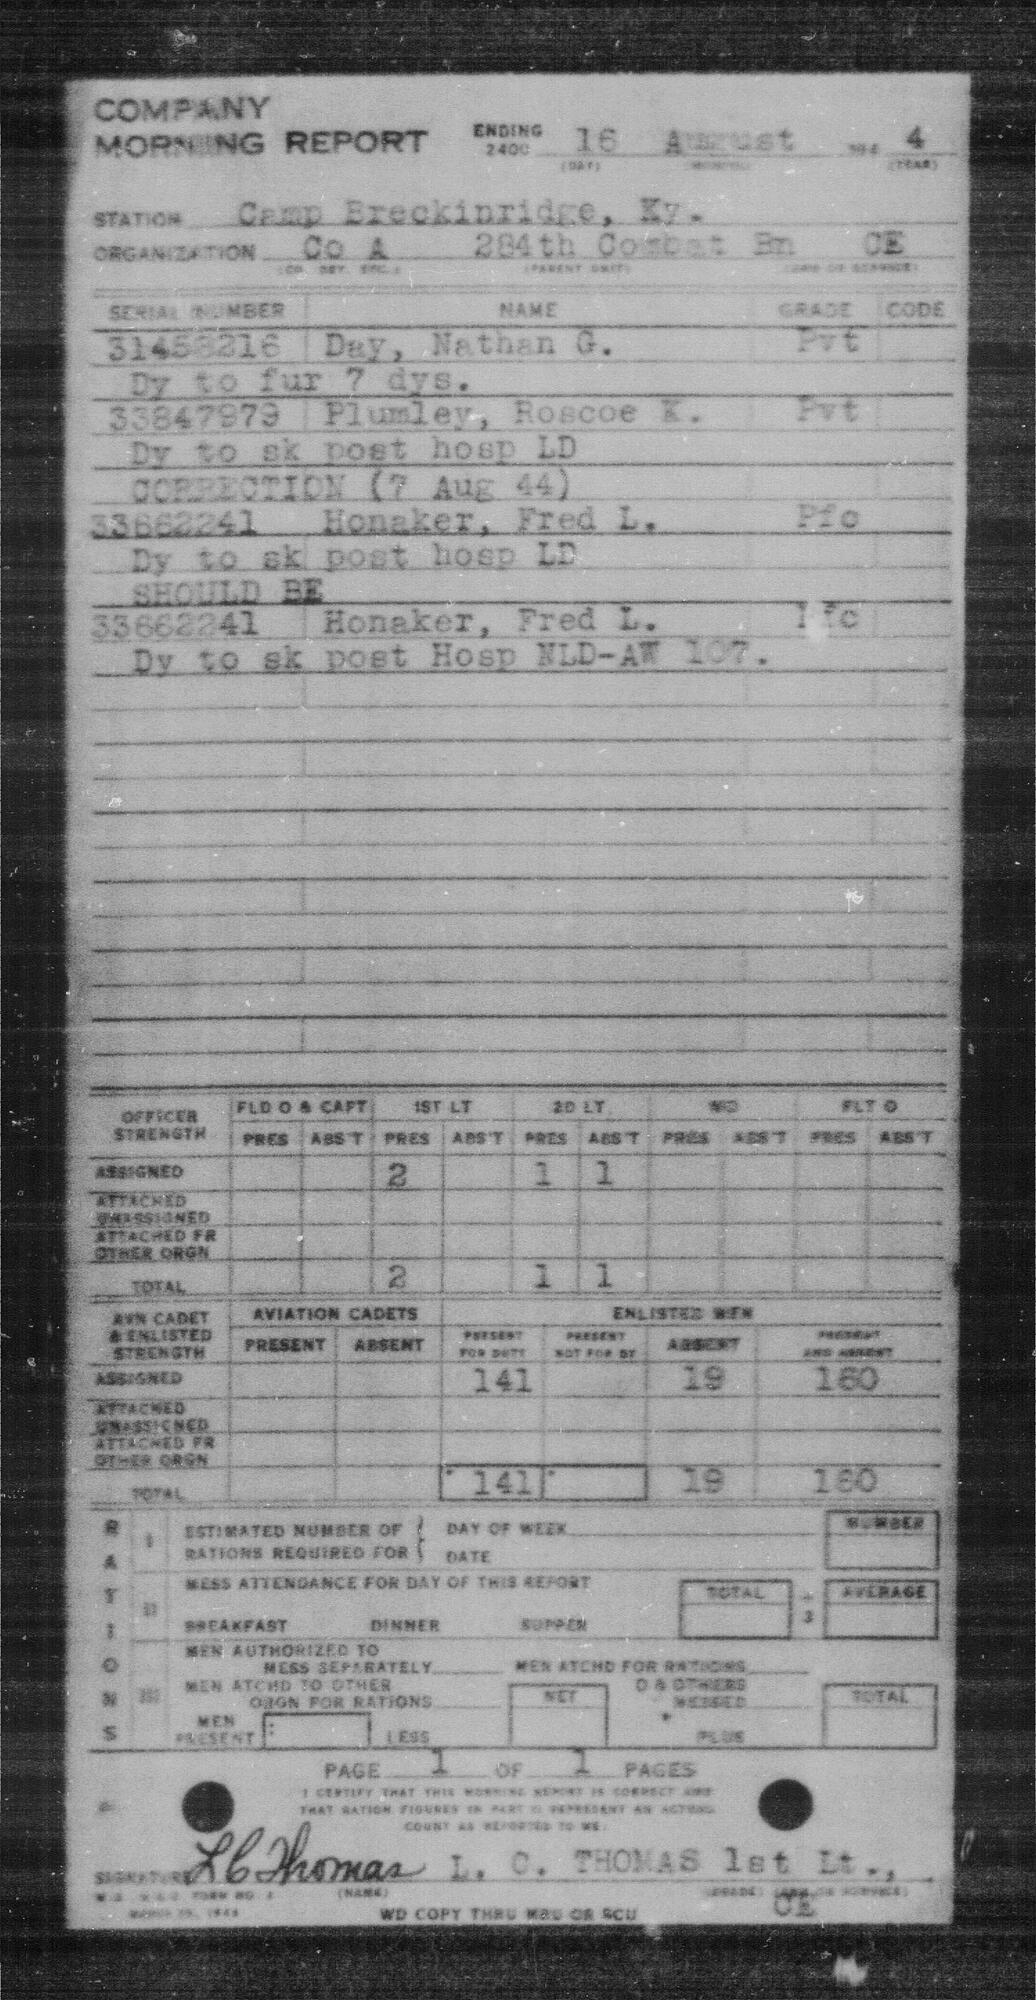 COMPANY
MORNING REPORT ENDING 2400 16 August 194 4
(DAY) (MONTH) (YEAR)
STATION Camp Breckinridge, Ky.
ORGANIZATION Co A 284th Combat Bn CE
(CO. DET. ETC.) (PARENT UNIT) (ARM OR SERVICE)
SERIAL NUMBER NAME GRADE CODE
31458216 Day, Nathan G. Pvt
Dy to fur 7 dys.
33847979 Plumley, Roscoe K. Pvt
Dy to sk post hosp LD
CORRECTION (7 Aug 44)
33662241 Honaker, Fred L. Pfc
Dy to sk post hosp LD
SHOULD BE
33662241 Honaker, Fred L. Pfc
Dy to sk post Hosp NLD-AW 107.
OFFICER STRENGTH FLD O & CAPT 1ST LT 2D LT WO FLT O
PRES ABS'T PRES ABS'T PRES ABS'T PRES ABS'T PRES ABS'T
ASSIGNED 2 1 1
ATTACHED UNASSIGNED
ATTACHED FR OTHER ORGN
TOTAL 2 1 1
AVN CADET & ENLISTED STRENGTH AVIATION CADETS ENLISTED MEN
PRESENT ABSENT PRESENT FOR DUTY PRESENT NOT FOR DY ABSENT PRESENT AND ABSENT
ASSIGNED 141 19 160
ATTACHED UNASSIGNED
ATTACHED FR OTHER ORGN
TOTAL 141 19 160
RATIONS
ESTIMATED NUMBER OF DAY OF WEEK NUMBER
RATIONS REQUIRED FOR DATE
MESS ATTENDANCE FOR DAY OF THIS REPORT TOTAL ÷ 3 AVERAGE
BREAKFAST DINNER SUPPER
MEN AUTHORIZED TO
MESS SEPARATELY MEN ATCHD FOR RATIONS
MEN ATCHD TO OTHER
ORGN FOR RATIONS NET O & OTHERS MESSED TOTAL
MEN PRESENT LESS PLUS
PAGE 1 OF 1 PAGES
I CERTIFY THAT THIS MORNING REPORT IS CORRECT AND
THAT RATION FIGURES IN PART II REPRESENT AN ACTUAL
COUNT AS REPORTED TO ME:
SIGNATURE L C Thomas L. C. THOMAS 1st Lt.,
(NAME) (GRADE) (ARM OR SERVICE)
CE
W.D. A.G.O. FORM NO. 1
WD COPY THRU MRU OR SCU